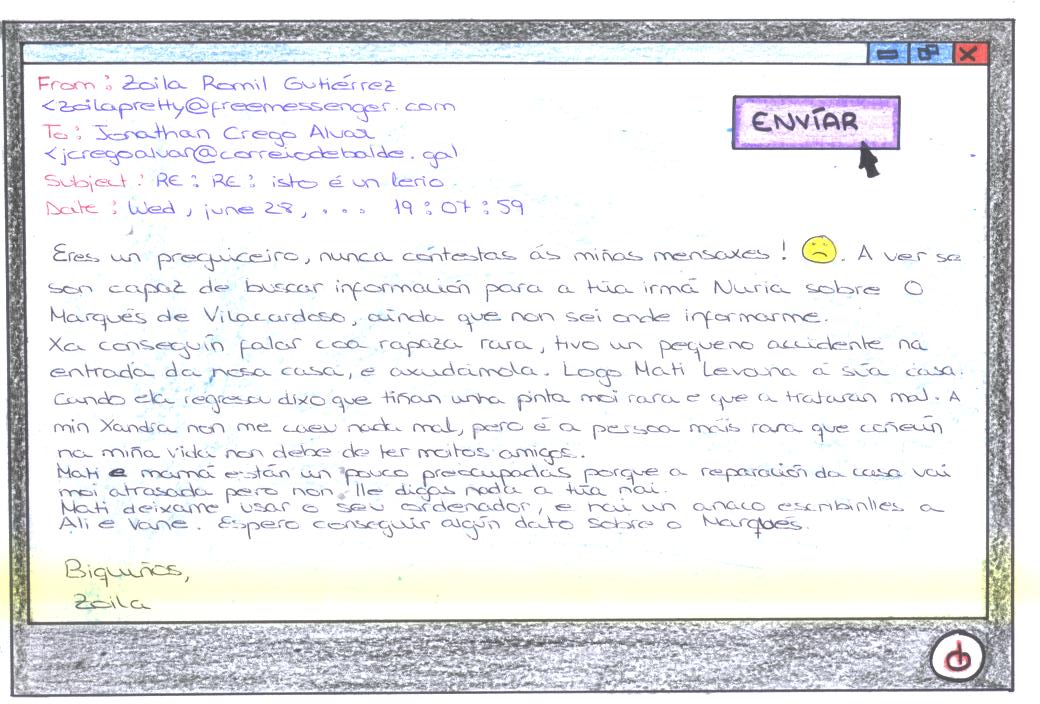 From: Zoila Romil Gutiérrez
<zoilapretty@freemessenger.com
To: Jonathan Crego Alvar
<jcregoalvar@correiodebalde.gal
ENVÍAR
Subject: RE: RE: isto é un lerio.
Date: Wed, june 28, ... 19:07:59
Eres un preguiceiro, nunca contestas ás miñas mensaxes! . A ver se
son capaz de buscar información para a túa irmá Nuria sobre O
Marqués de Vilacardoso, aínda que non sei onde informarme.
Xa conseguín falar coa rapaza rara, tivo un pequeno accidente na
entrada da nosa casa, e axudámola. Logo Mati levouna á súa casa.
Cando ela regresou dixo que tiñan unha pinta moi rara e que a trataran mal. A
min Xandra non me caeu nada mal, pero é a persoa máis rara que coñecín
na miña vida non debe de ter moitos amigos.
Mati e mamá están un pouco preocupadas porque a reparación da casa vai
moi atrasada pero non lle digas nada a túa nai.
Mati deixame usar o seu ordenador, e hai un anaco escribinlles a
Ali e Vane. Espero conseguir algún dato sobre o Marqués.
Biquiños,
Zoila